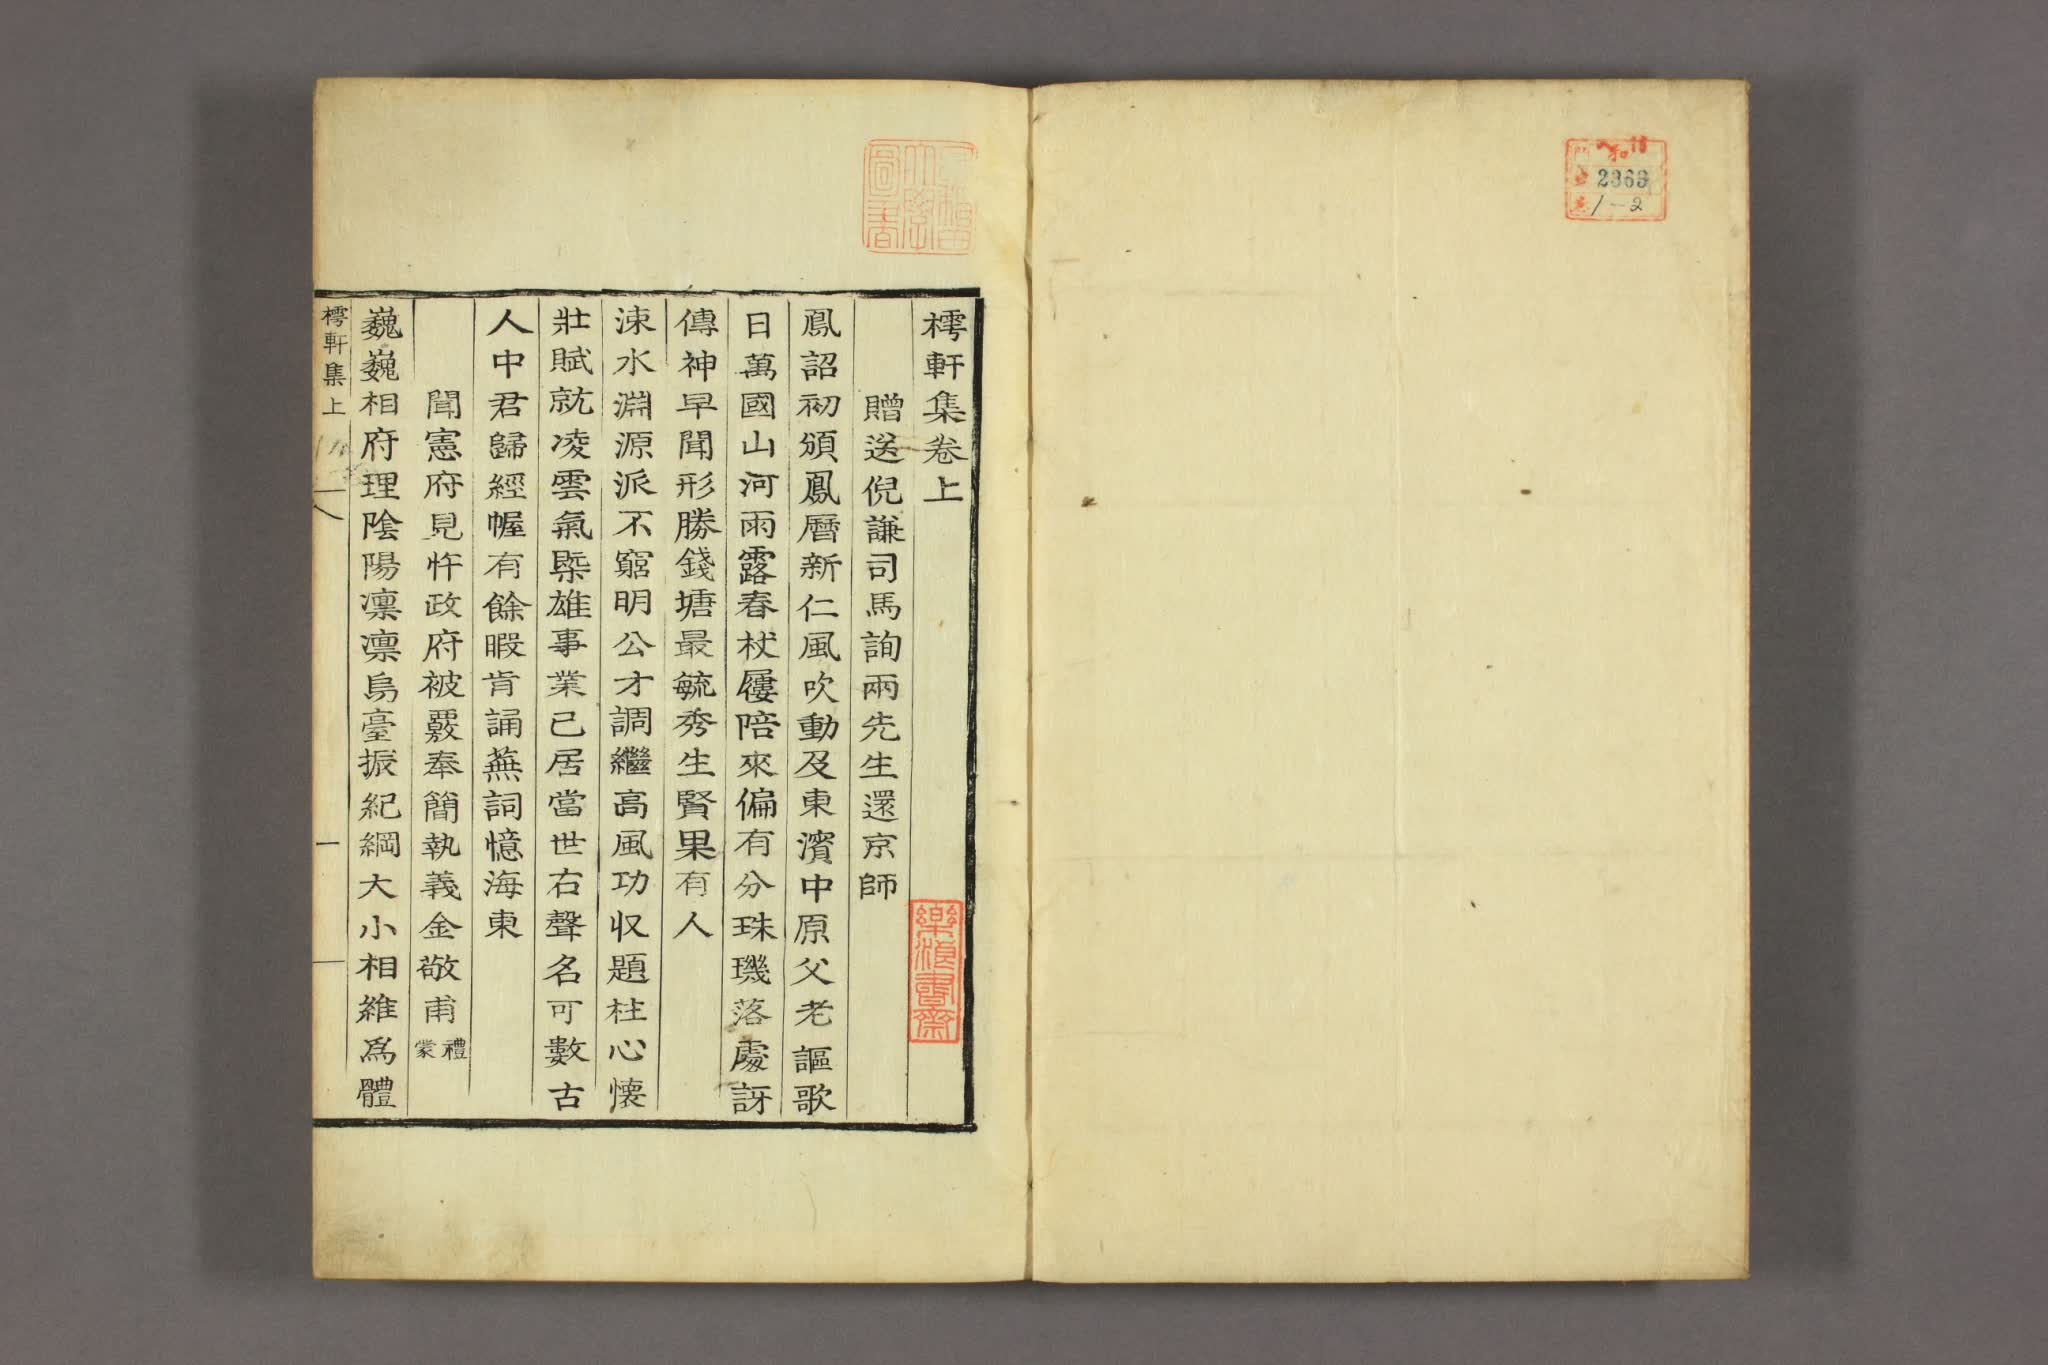 2363
1-2
樗軒集卷上
贈送倪謙司馬詢兩先生還京師
鳳詔初頒鳳曆新仁風吹動及東濱中原父老謳歌
日萬國山河雨露春杖屨陪來偏有分珠璣落處訝
傳神早聞形勝錢塘最毓秀生賢果有人
涑水淵源派不窮明公才調繼高風功収題柱心懷
壯賦就凌雲氣槩雄事業已居當世右聲名可數古
人中君歸經幄有餘暇肯誦蕪詞憶海東
聞憲府見忤政府被覈奉簡執義金敬甫禮蒙
巍巍相府理陰陽凛凛烏臺振紀綱大小相維爲體
樗軒集上
一
樂浪書齋